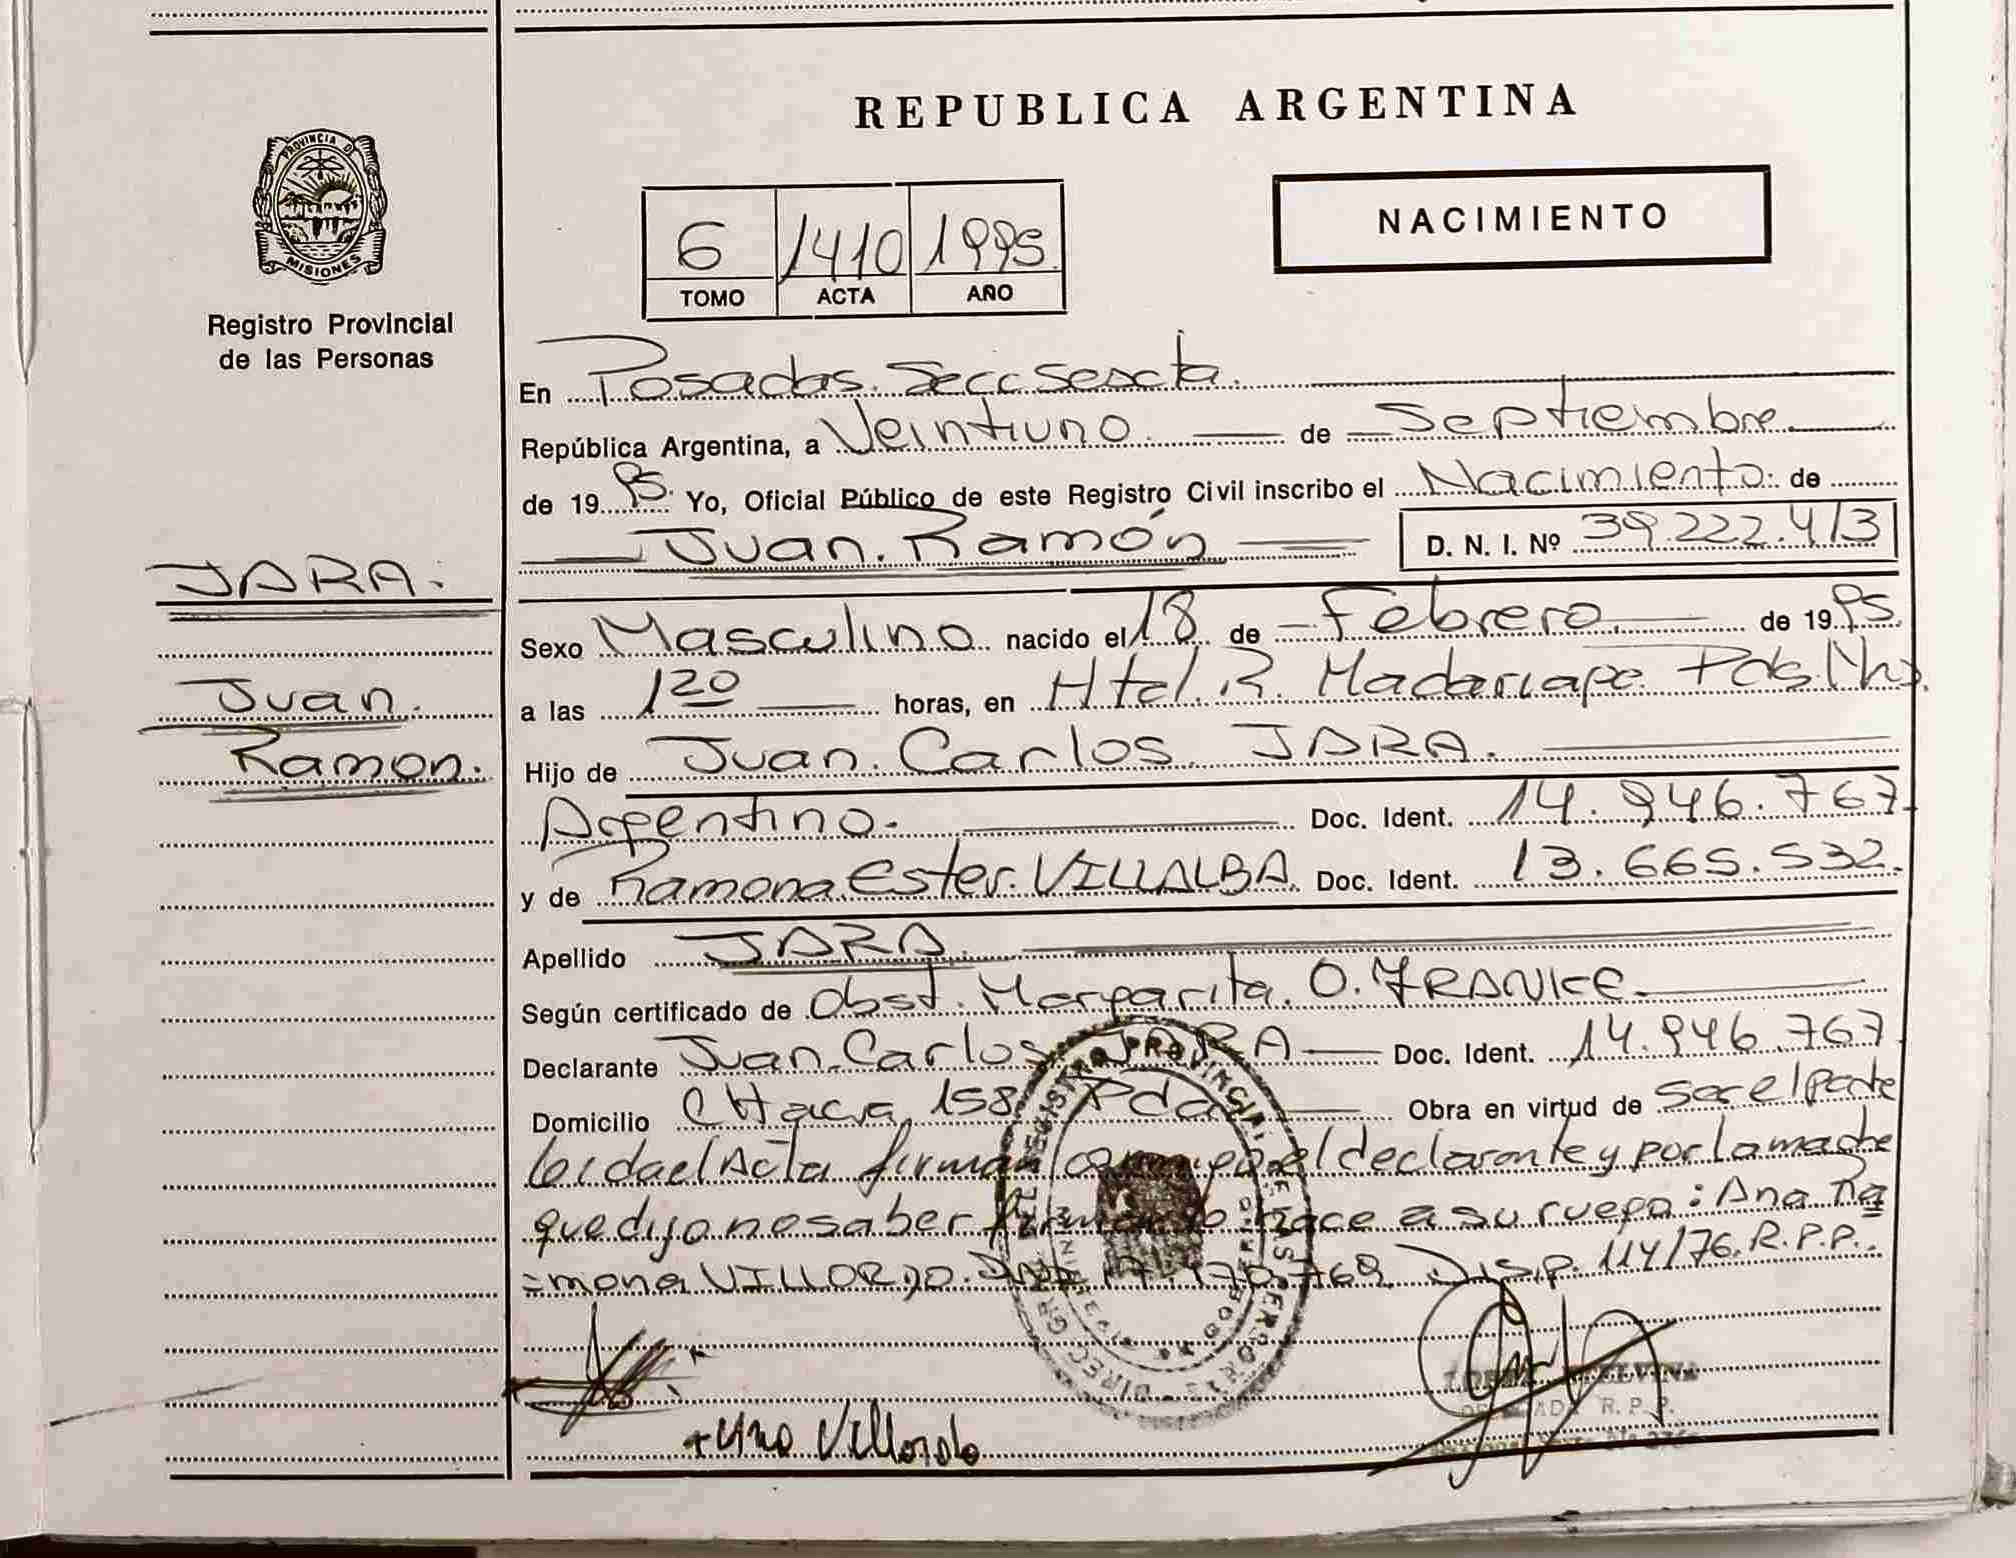 REPUBLICA ARGENTINA
PROVINCIA D
MISIONES
Registro Provincial
de las Personas
NACIMIENTO
6 1410 1995
TOMO ACTA AÑO
En Posadas. Secc Sexta.
República Argentina, a Veintiuno. de Septiembre.
de 1995. Yo, Oficial Público de este Registro Civil inscribo el Nacimiento: de
Juan. Ramón D. N. I. Nº 39.222.413
JARA.
Juan.
Ramon.
Sexo Masculino nacido el 18 de Febrero. de 1995.
a las 1 20 horas, en Htal. R. Madariaga. Pds. Mns.
Hijo de Juan. Carlos. JARA.
Argentino. Doc. Ident. 14.946.767.
y de Ramona. Ester. VILLALBA. Doc. Ident. 13.665.532.
Apellido JARA.
Según certificado de Obst. Margarita. O. FRANKE.
Declarante Juan. Carlos JARA Doc. Ident. 14.946.767
Domicilio CHacra 158 Pdas Obra en virtud de ser el padre
leida el Acta firman conmigo el declarante y por la madre
que dijo no saber firmar lo hace a su ruego: Ana Ra
=mona VILLORDO. Disp. 114/76. R.P.P.
Ana Villordo
R. P. P.